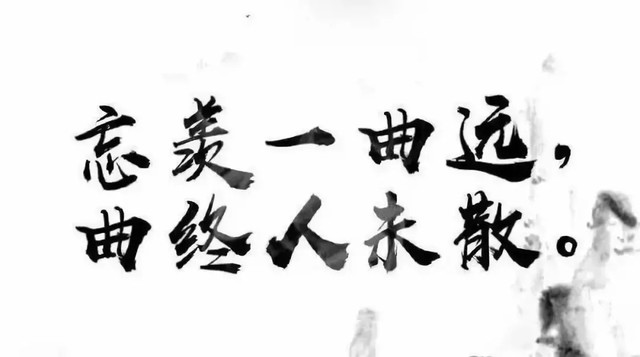 忘羡一曲远，
曲终人未散。